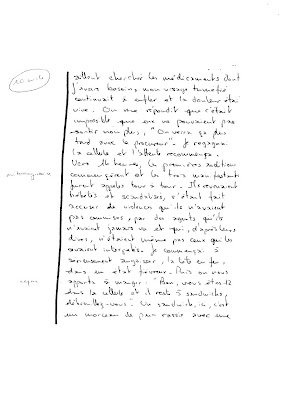 allant chercher les médicaments dont
j'avais besoin, mon visage tuméfié
continuait à enfler et la douleur était
vive. On me répondit que c'était
impossible que on ne pouvaient pas
sortir non plus, "On verra ça plus
tard avec le procureur". Je regagnai
la cellule et l'attente recommença.
Vers 14 heures, les premières auditions
commencèrent et les trois manifestants
furent appelés tour à tour. Ils revenaient
hébétés et scandalisés, s'étant fait
accuser de violences qu'ils n'avaient
pas commises, par des agents qu'ils
n'avaient jamais vu et qui, d'après leurs
dires, n'étaient même pas ceux qui les
avaient interpellés. Je commençai à
sérieusement angoisser, la tête en feu,
dans un état fiévreux. Puis on nous
apporta à manger : "Bon, vous êtes 12
dans la cellule et il reste 5 sandwichs,
débrouillez-vous". Un sandwich, ici, c'est
un morceau de pain rassis avec une